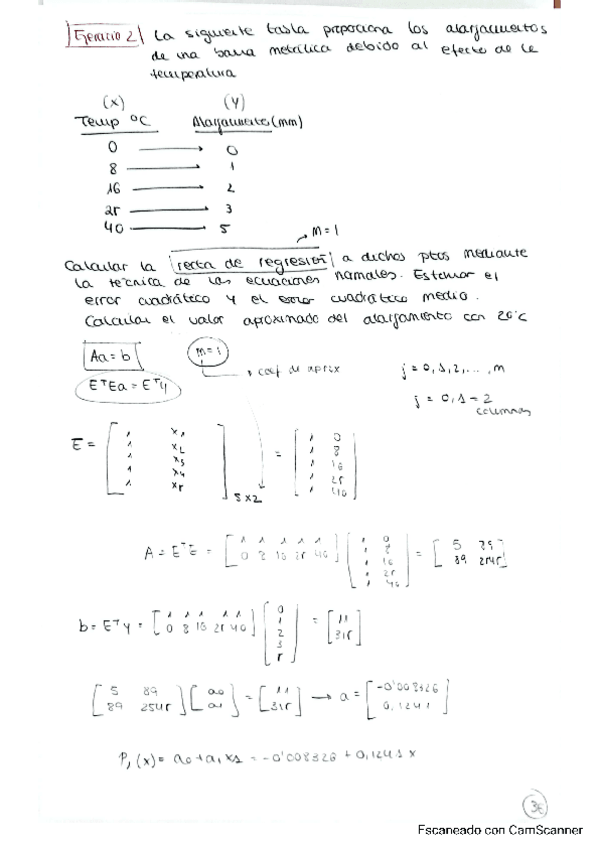 Ejercicio 2) La siguiente tabla proporciona los alargamientos
de una barra metálica debido al efecto de la
temperatura
(x) (y)
Temp °C Alargamiento (mm)
0 → 0
8 → 1
16 → 2
25 → 3
40 → 5
m = 1
Calcular la recta de regresión a dichos ptos mediante
la técnica de las ecuaciones normales. Estimar el
error cuadrático y el error cuadrático medio.
Calcular el valor aproximado del alargamiento con 20°C
Aa = b m = 1 coef de aprox j = 0, 1, 2, ..., m
EᵀEa = Eᵀy j = 0, 1 → 2
columnas
E = [1 x1; 1 x2; 1 x3; 1 x4; 1 x5] 5x2 = [1 0; 1 8; 1 16; 1 25; 1 40]
A = EᵀE = [1 1 1 1 1; 0 8 16 25 40] [1 0; 1 8; 1 16; 1 25; 1 40] = [5 89; 89 2545]
b = Eᵀy = [1 1 1 1 1; 0 8 16 25 40] [0; 1; 2; 3; 5] = [11; 315]
[5 89; 89 2545] [a0; a1] = [11; 315] → a = [-0'008326; 0,1241]
P₁(x) = a0 + a1 x1 = -0'008326 + 0,1241 x
Escaneado con CamScanner